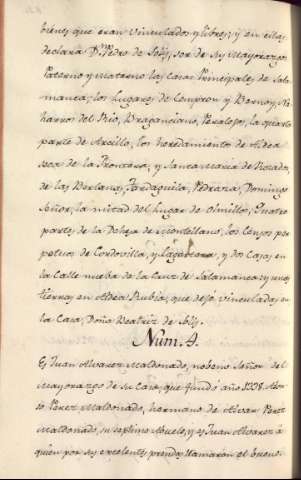 bienes que eran vinculados y libres; y en ella
declara Dn. Pedro de Solis, ser de su Mayorazgo
Paterno y materno las casas Principales de Sala-
manca, los Lugares de Cempron y Bernoy,
harros del Rio, Braganciano, Peraloso, la quarta
parte de Arcillo, los heredamientos de Aldea
seca de la Frontera, y Santa Maria de
de las Borlanas, Tardaguila, Pedraza, Domingo
Señor, la mitad del Lugar de Olmillos, Quatro
partes de la Dehesa de Montellano, los Censos per-
petuos de Cordovilla, y y dos Casas en
la Calle nueba de la Cruz de Salamanca, y unas
tierras en Aldea Rubia, que dejó vinculadas en
la Casa, Doña Beatriz de Solis.
Num. 4.
Es Juan Alvarez Maldonado, nobeno Señor del
Mayorazgo de su Casa, que fundó año 1338. Alon-
so Perez Maldonado, hermano de Alvar Perez
Maldonado, su septimo Abuelo, y es Juan Alvarez á
quien por sus excelentes prendas llamaron el bueno.